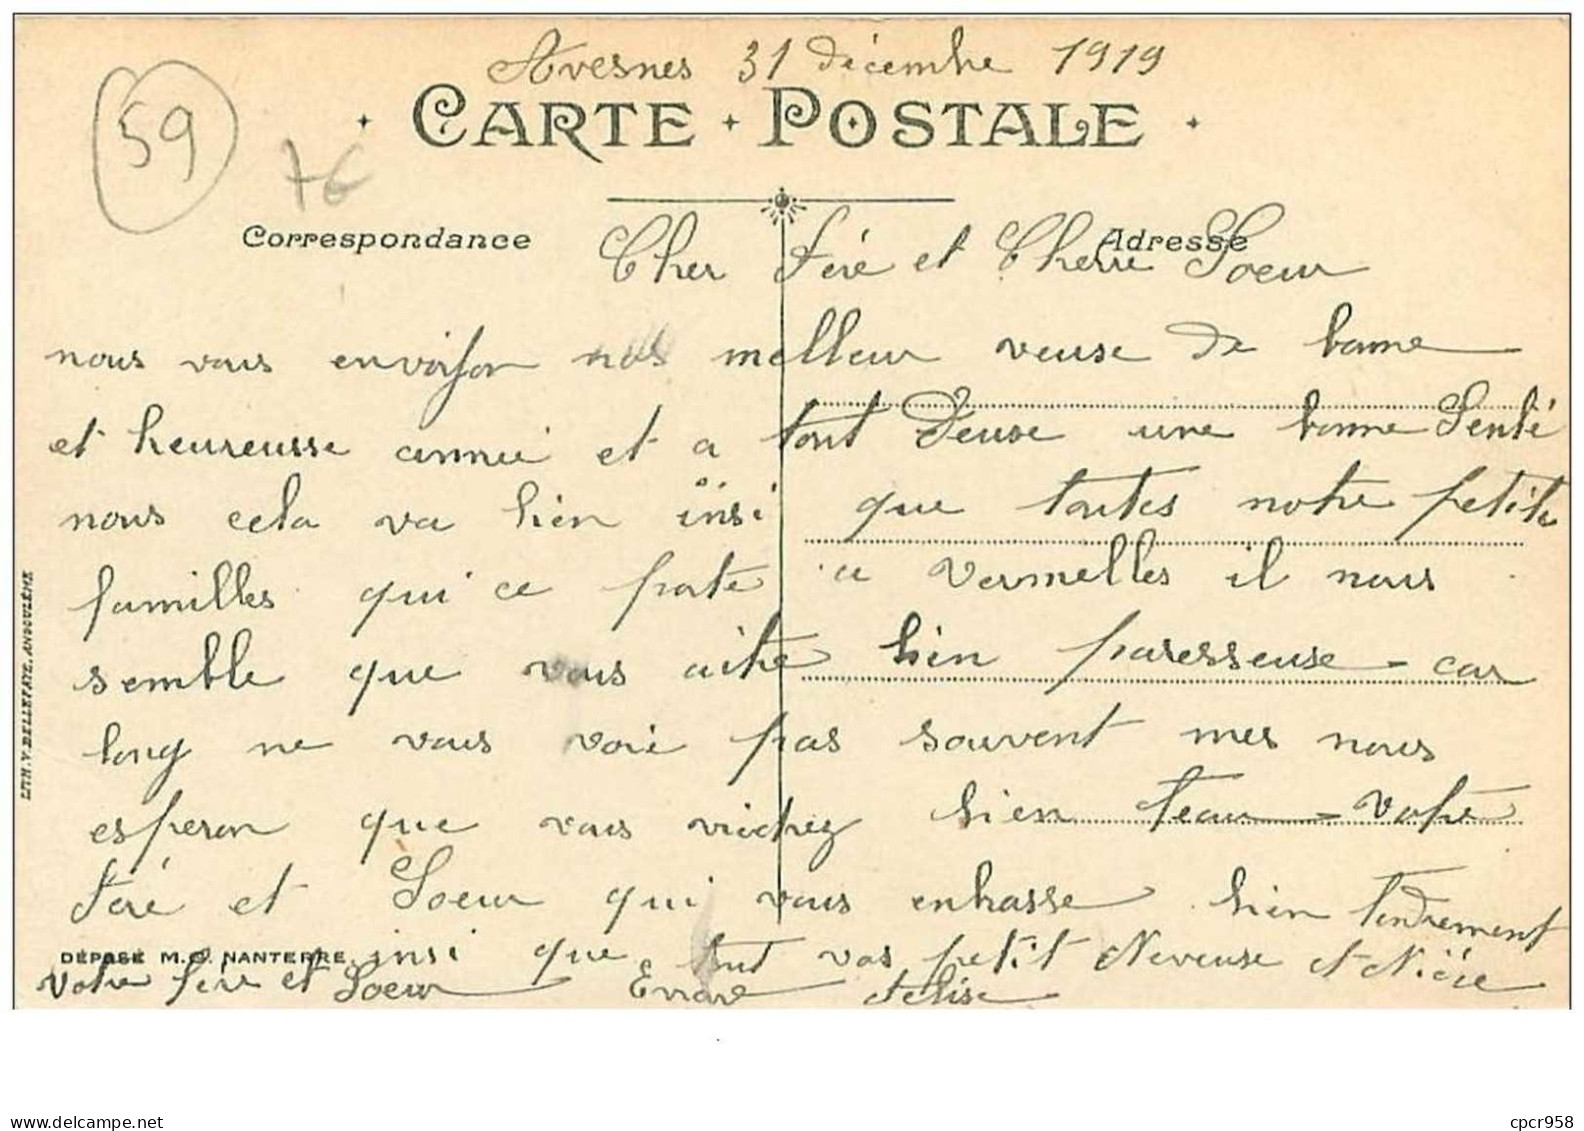 Avesnes 31 décembre 1919
59
CARTE POSTALE
7€
Correspondance
Adresse
Cher Frére et Cherre Soeur
nous vous envoison nos melleur veuse de bonne
et heureusse année et a tout Deuse une bonne Senté
nous cela va bien insi que toutes notre petite
familles qui ce porte a Vermelles il nous
semble que vous aite bien paresseuse - car
long ne vous voie pas souvent mes nous
esperon que vous viedrez bien teau - Votre
Frére et Soeur qui vous enbrasse bien tendrement
DÉPOSÉ M.D. NANTERRE
insi que tout vos petit Neveuse et Niéce
votre frére et Soeur
LITH. V. BELLEFAYE. ANGOULÊME
www.delcampe.net
cpcr958